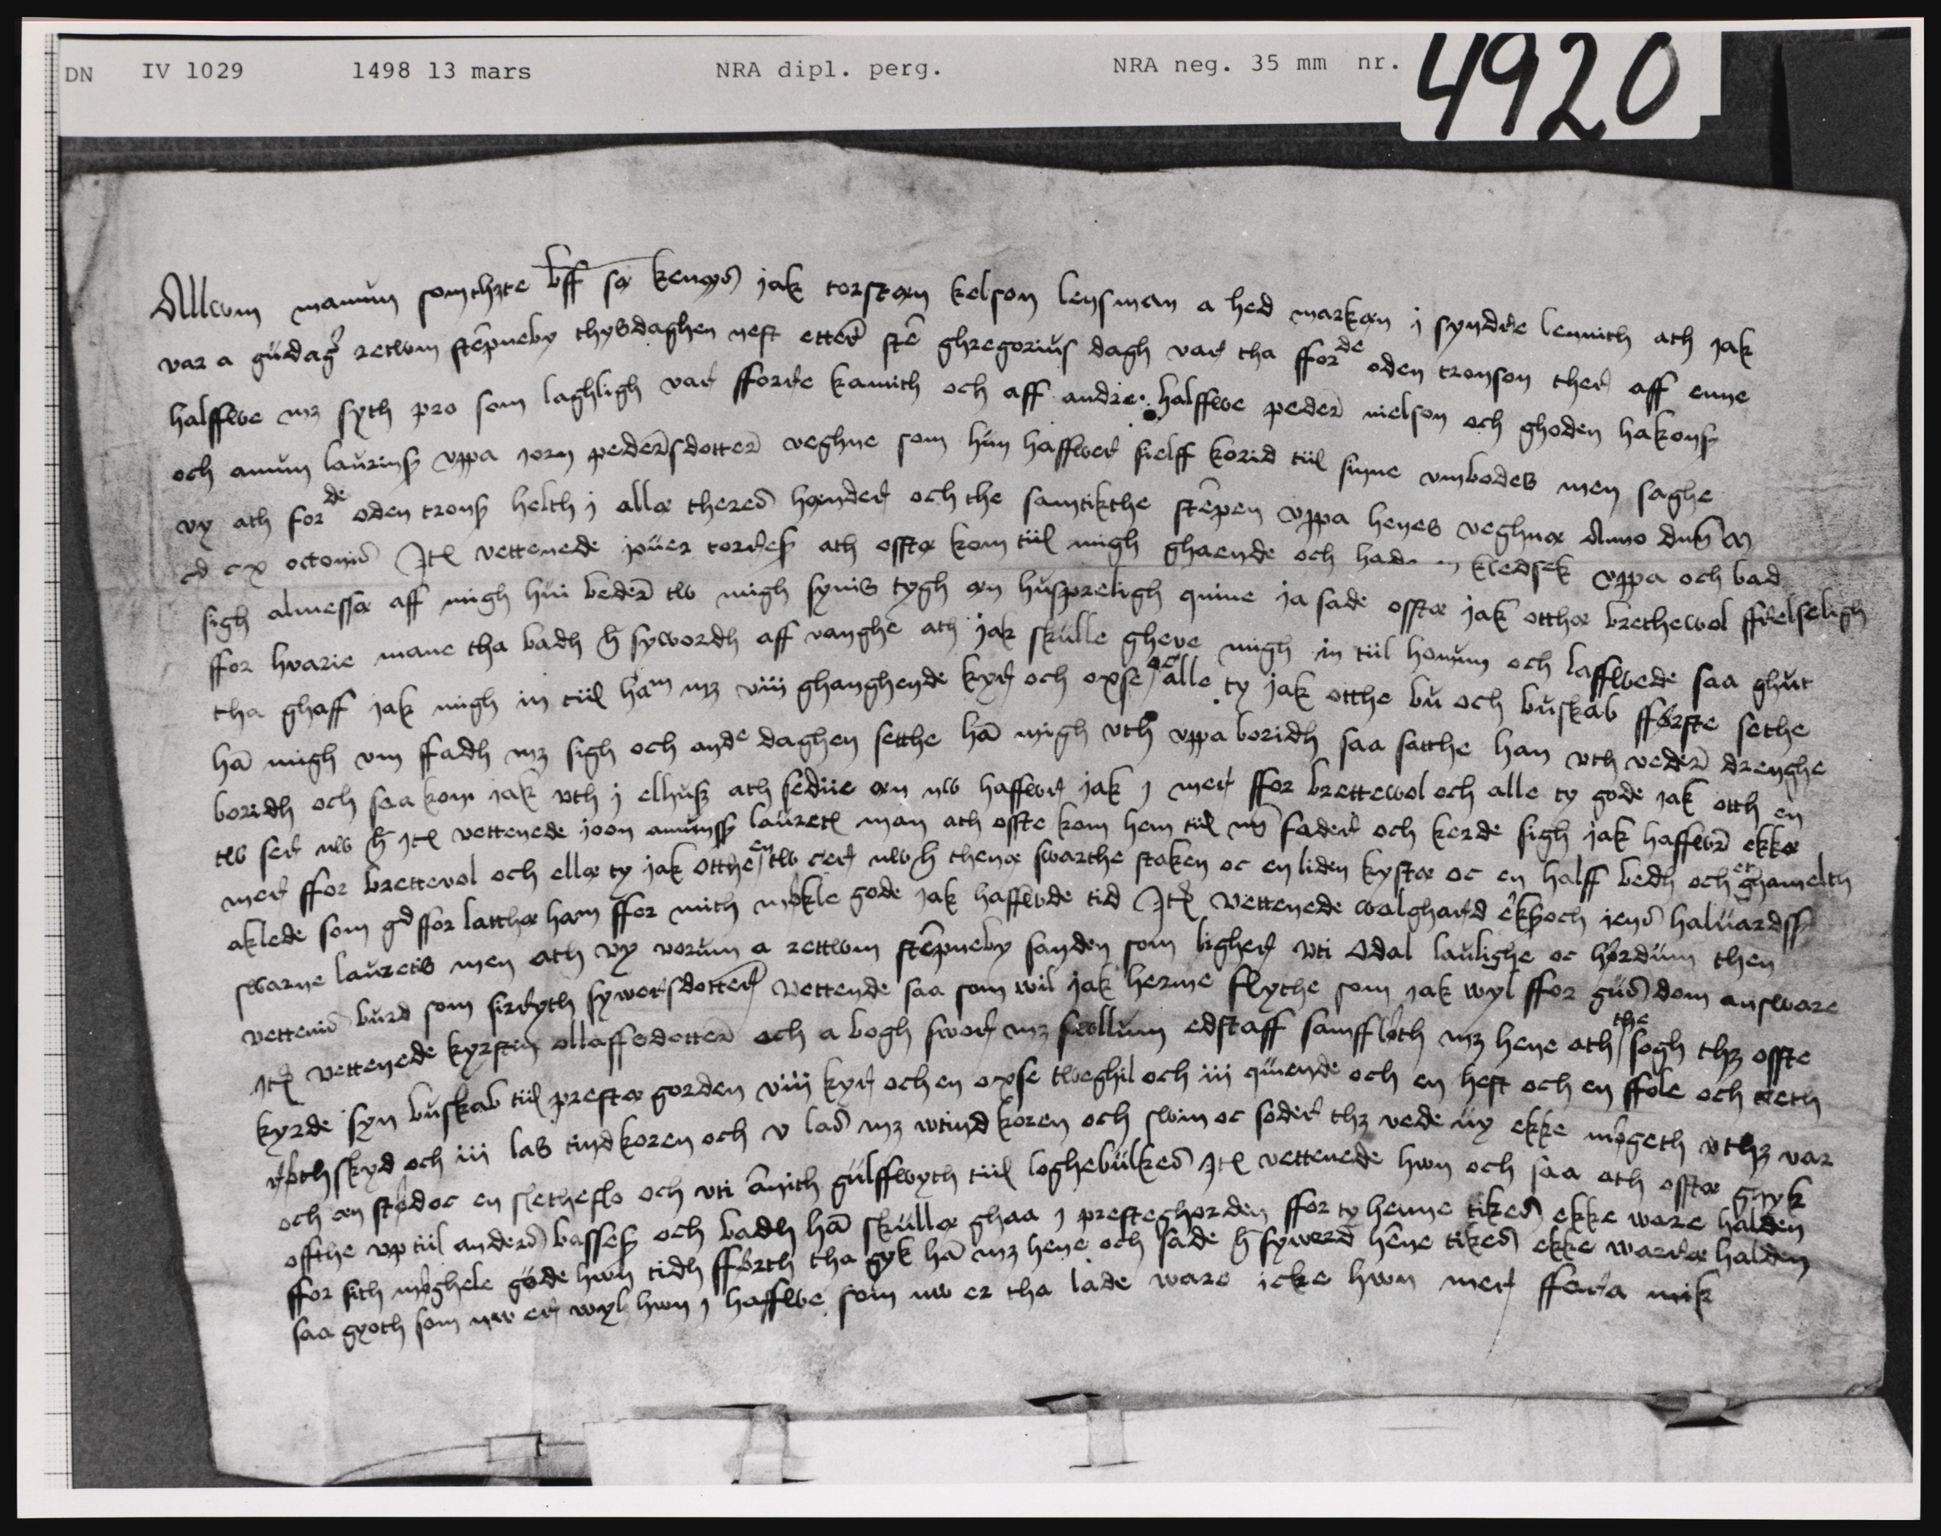 DN IV 1029 1498 13 mars NRA dipl. perg. NRA neg. 35 mm nr. 4920
Allwm mannum som thzte bff sæ kengis jak torstæn kelson lensman a hed markæn j syndre lemith ath jak
var a gudagh retwm stepneby thysdaghen nest etter ste ghregorius dagh var tha ffor de oden tronson ther aff enne
halffwe mz syth pro som laghligh var fforre kamith och aff andre halffwe peder nielson och ghoden hakons
och amun laurins vppa pedersdotter veghne som hun haffwer sielff korid tiil sinne vmbodes men saghe
vy ath for de oden trons helth j allæ theres hænder och the samtikthe stepen vppa henes veghnæ Anno dni M
cd cx octouis Jtem vettenede juer ath offtæ kom tiil migh ghaende och kledsek vppa och bad
sigh almessæ aff migh hui beder tw migh synis tygh æn husperligh quine ja sade offtæ jak otthæ brethewol ffrelseligh
ffor hvarie mane tha badh h sywordh aff vanghe ath jak skulle gheve migh in tiil honum och laffwede saa ghut
tha ghaff jak migh in tiil ham mz viii ghanghende kyr och oxse oc alle ty jak otthe bu och buskab fførste sethe
ha migh vm ffadh mz sigh och ande daghen setthe ha migh vth vppa boridh saa satthe han vth veder drenghe
boridh och saa kom jak vth j elhus ath sediie æn nw haffwer jak j mer ffor brettewol och alle ty gode jak otth en
tw ser nw h jtem vettenede joon amunss lauretes man ath offte kom hem tiil min fader och kerde sigh jak haffwer ekkæ
mer ffor brettevol och ellæ ty jak otthe en tw cer nw h thenæ swarthe staken oc en liden kystæ oc en halff bedh och et ghamelth
aklede som gd ffor latthæ ham ffor mith mykle gode jak haffwde tid Jtem vettenede walghard eks och jens haluardss
swarne lauretis men ath vy vorum a rettwm stepneby sanden som ligher vti Odal laulighe oc hørdum then
vettenis burd som sirryth sywersdotter vettende saa som wil jak herme fflythe som jak wyl ffor guds dom answare
Jtem vettenede kyrsten ollaffsdotter och a bogh swor mz fwllum edstaff samffløth mz hene ath the sogh thz offte
kyrde syn buskab tiil prestæ gorden viii kyr och en oxse tweghil och iii quiende och en hest och en ffole och
skyd och iii las tind koren och v las mz wtind koren och swin oc soder thz vede uy ekke møgeth vthz var
och æn stød oc en sletheslo och vti amith gulffwyth tiil loghebulkes Jtem vettenede hwn och saa ath offtæ gyk
offthe vp tiil anders basses och badh ha skullæ ghaa j presteghorden ffor ty henne tikes ekke ware halden
ffor sith møghele gode hwn tidh fførth tha gyk ha mz hene och sade h syword hene tikes ekke warræ halden
saa gyoth som nw er wyl hwn j haffwe som nw er tha lade ware icke hwn mer ffara mik